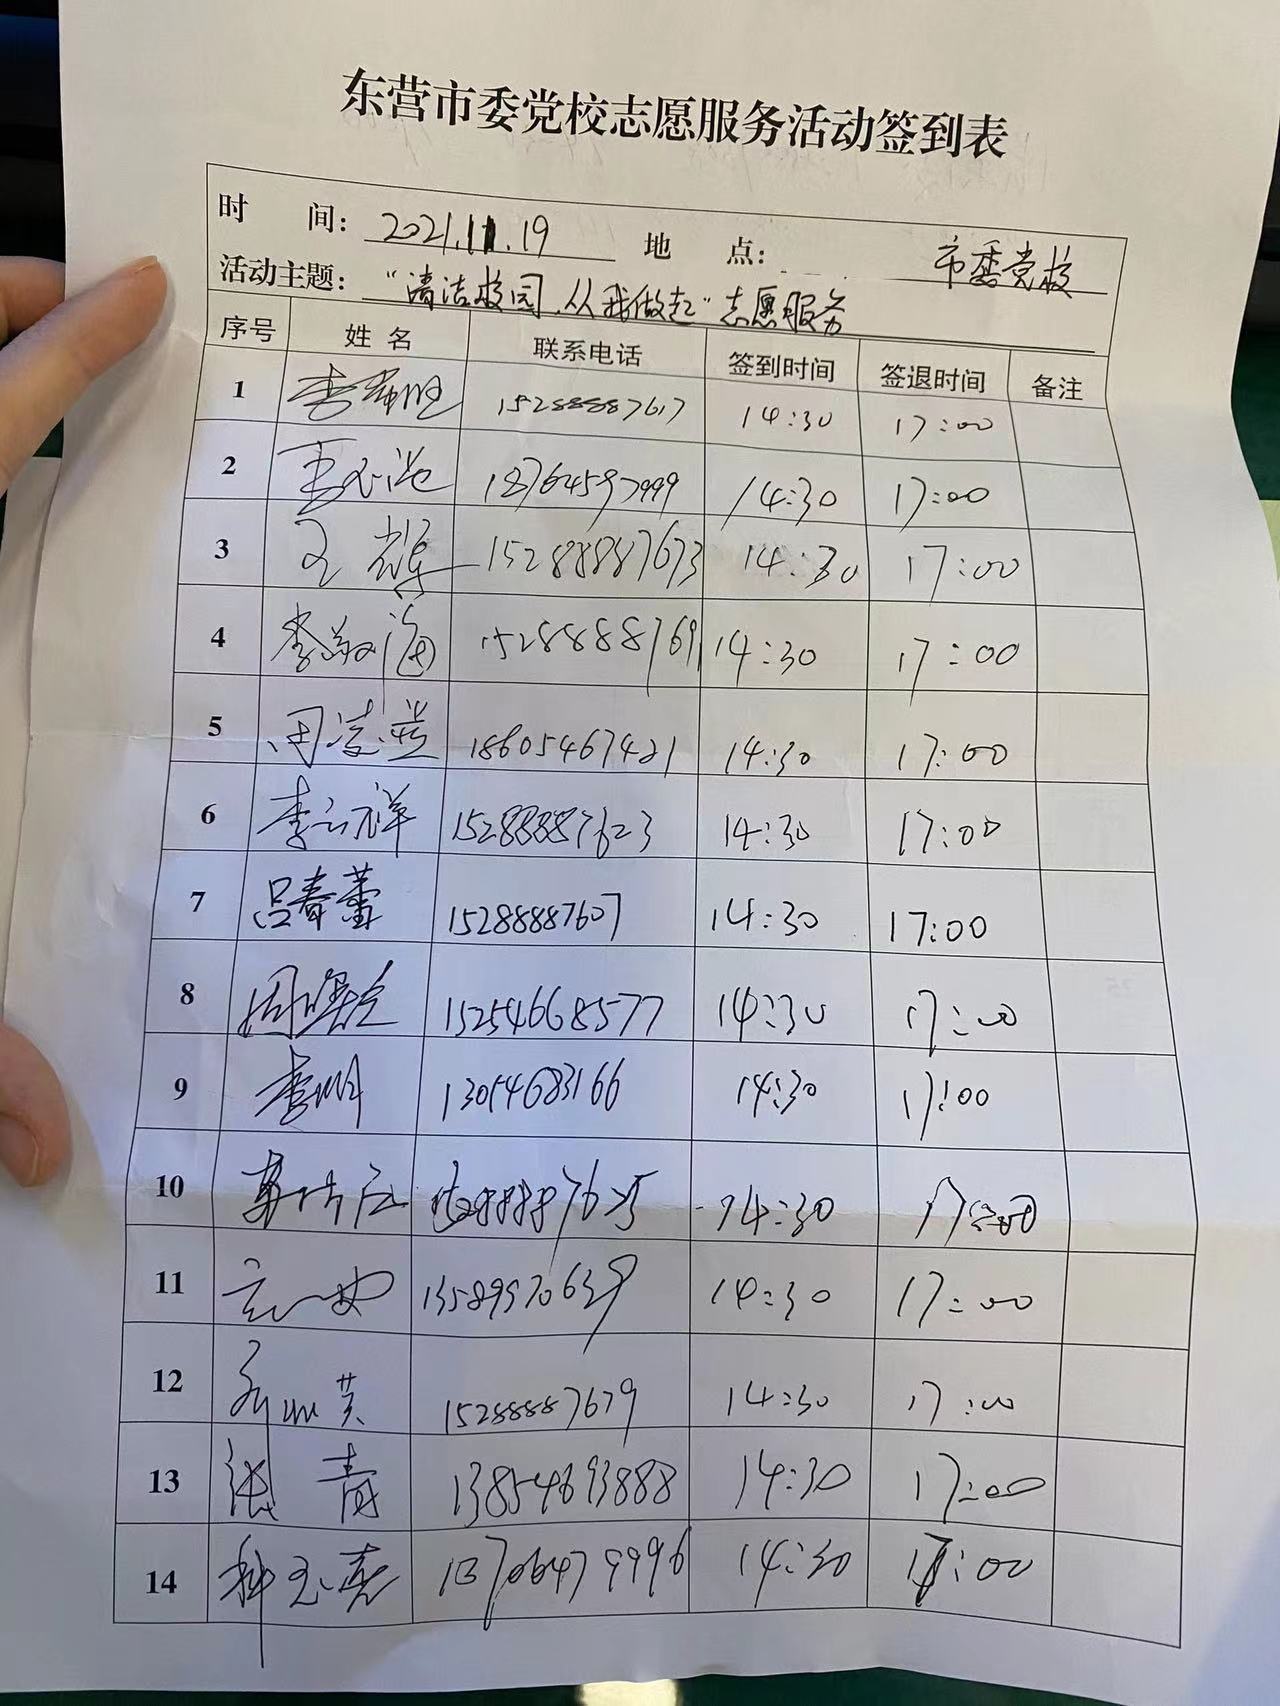 东营市委党校志愿服务活动签到表
时 间: 2021.11.19 地 点: 市委党校
活动主题: “清洁校园,从我做起”志愿服务
序号 姓名 联系电话 签到时间 签退时间 备注
1 李希胜 15288887617 14:30 17:00
2 18764597999 14:30 17:00
3 王 15288887673 14:30 17:00
4 李 海 1528888769 14:30 17:00
5 周凌 18605467421 14:30 17:00
6 李云祥 15288887623 14:30 17:00
7 吕春蕾 15288887607 14:30 17:00
8 周 15254668577 14:30 17:00
9 李明 13054683166 14:30 17:00
10 15288887625 14:30 17:00
11 13589970639 14:30 17:00
12 15288887679 14:30 17:00
13 张青 13854693888 14:30 17:00
14 13706479996 14:30 17:00